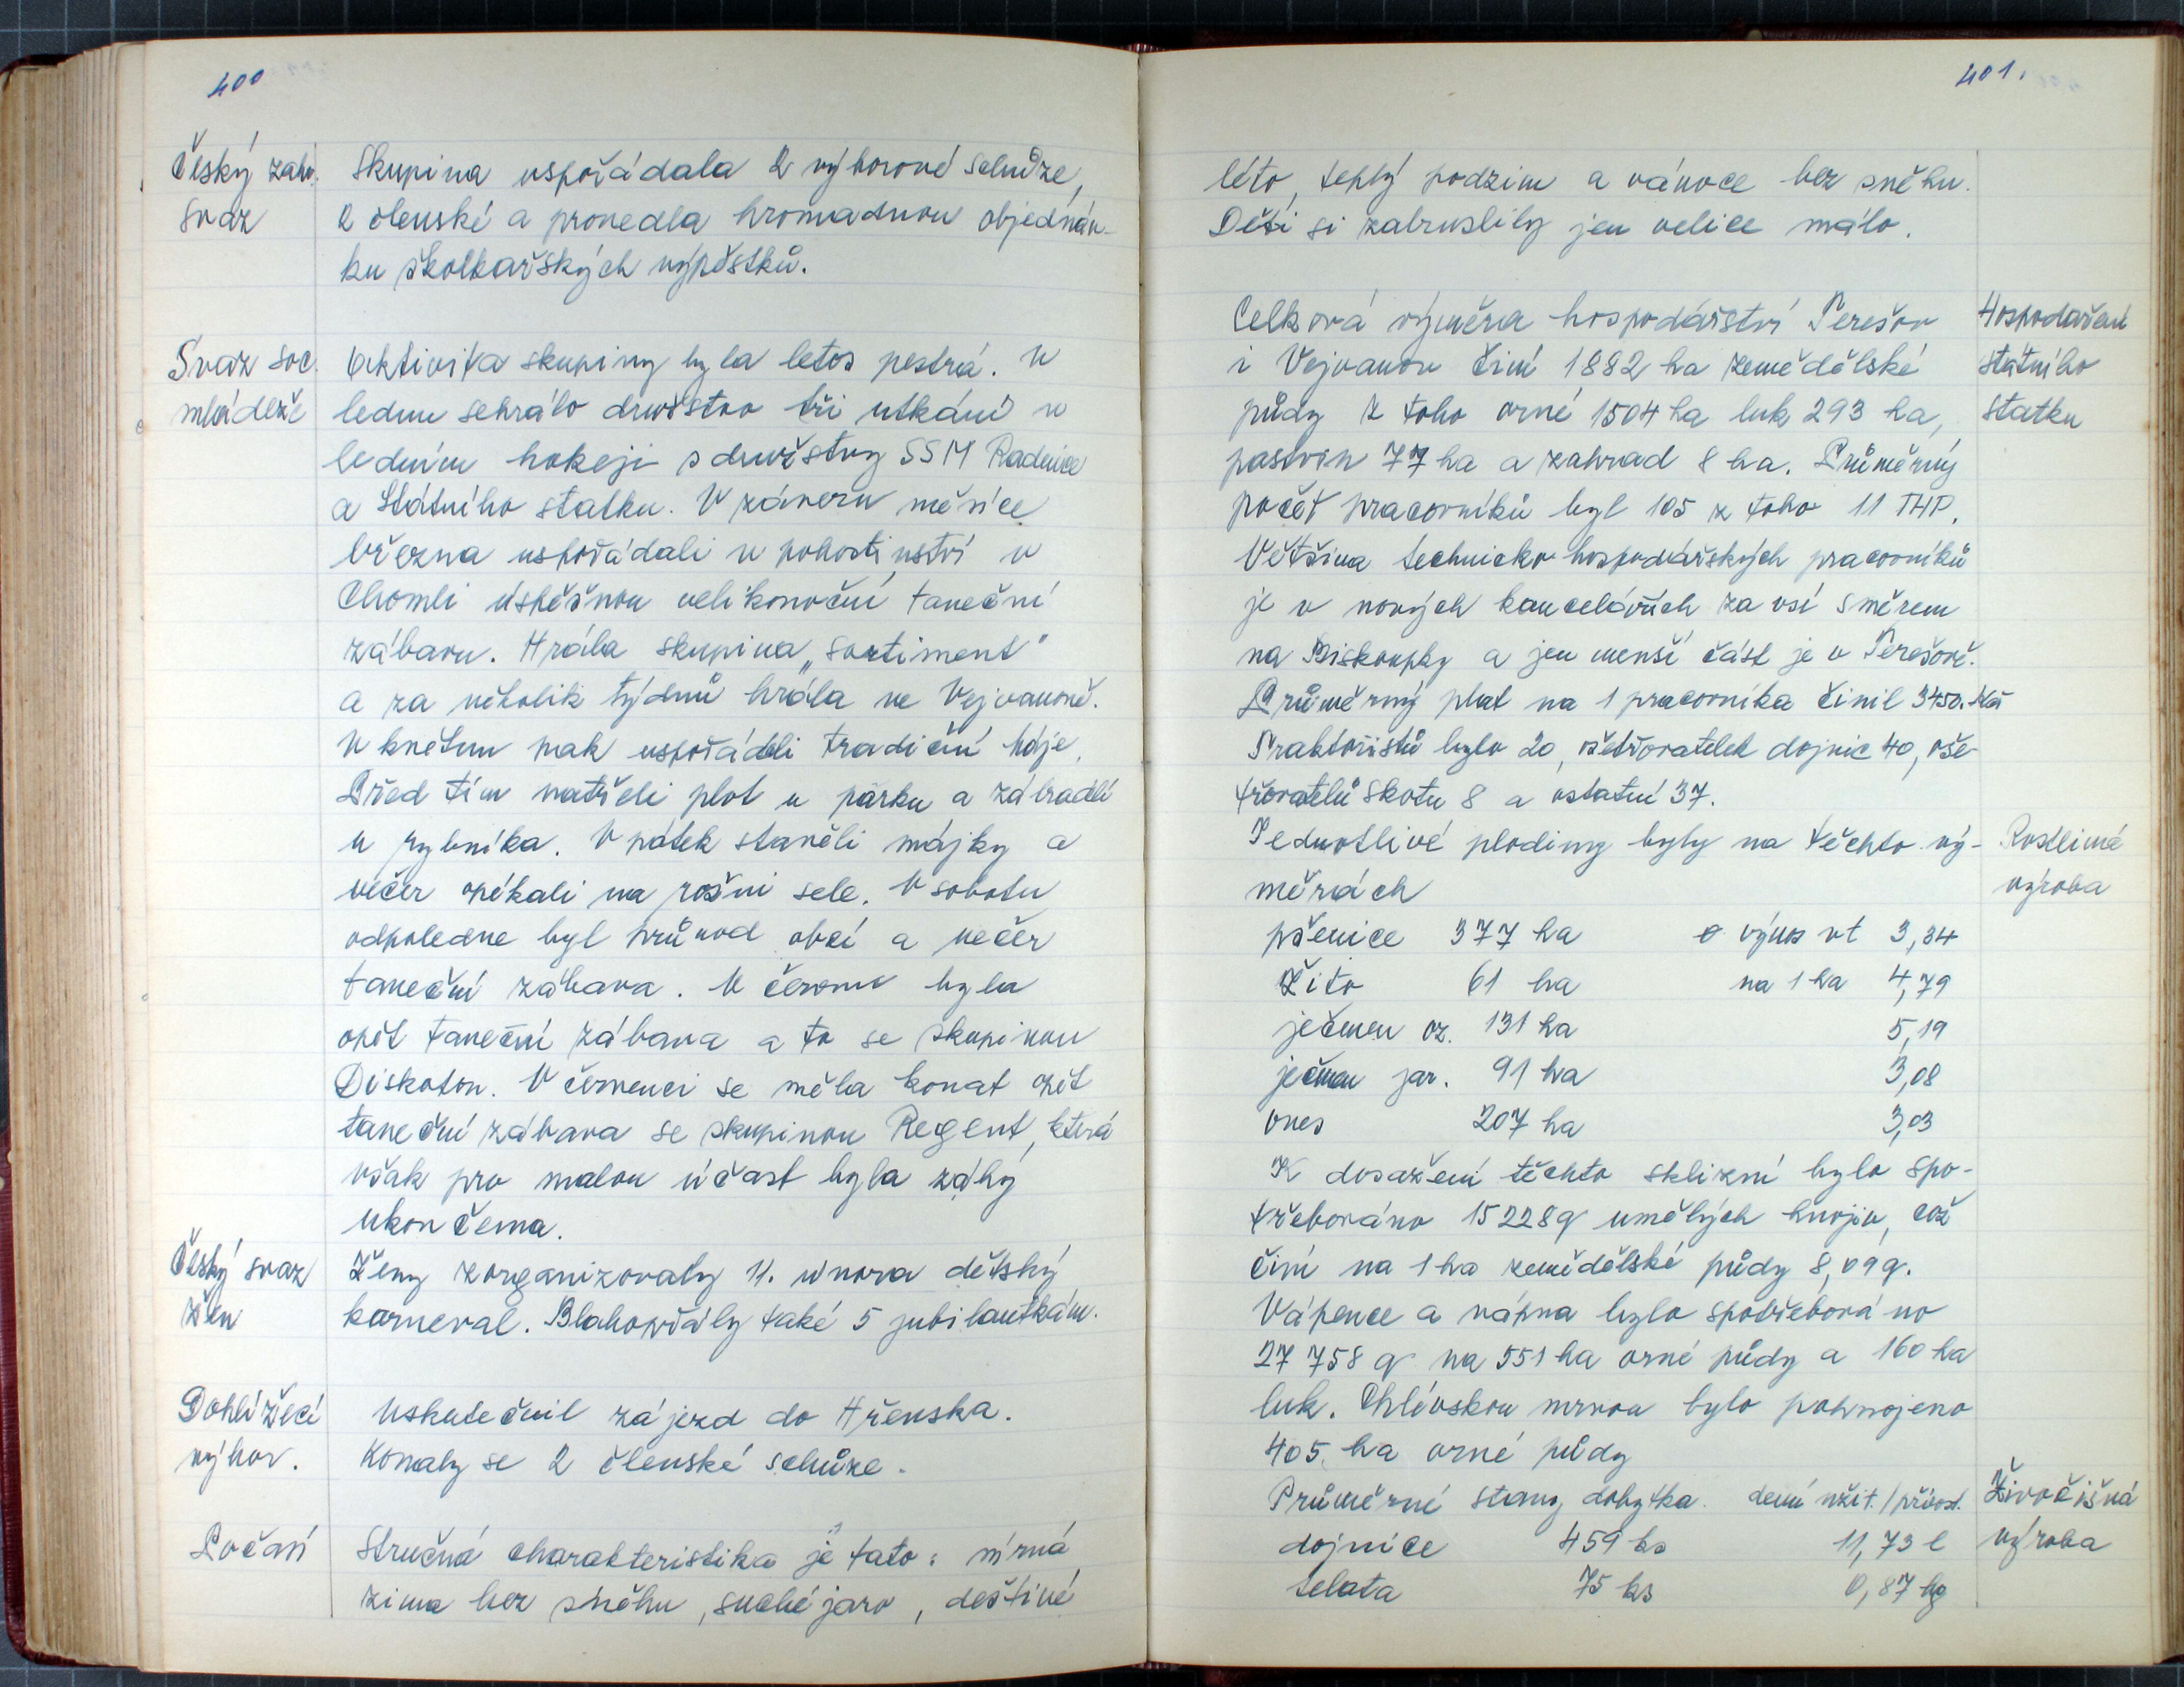 400
Český zahr. svaz
Skupina uspořádala 2 výborové schůze,
2 členské a provedla hromadnou objednáv-
ku školkařských výpěstků.
Svaz soc. mládeže
Aktivita skupiny byla letos pestrá. V
lednu sehrálo družstvo tři utkání v
ledním hokeji s družstvy SSM Radnice
a Státního statku. V závěru měsíce
března uspořádali v pohostinství v
Chomli úspěšnou velikonoční taneční
zábavu. Hrála skupina „Sortiment"
a za několik týdnů hrála ve Vejvanově.
V květnu pak uspořádali tradiční máje.
Před tím natřeli plot u parku a zábradlí
u rybníka. V pátek stavěli májky a
večer opékali na rožni sele. V sobotu
odpoledne byl průvod obcí a večer
taneční zábava. V červnu byla
opět taneční zábava a to se skupinou
Diskoton. V červenci se měla konat opět
taneční zábava se skupinou Regent, která
však pro malou účast byla záhy
ukončena.
Český svaz žen
Ženy zorganizovaly 11. února dětský
karneval. Blahopřály také 5 jubilantkám.
Dohlížecí výbor.
Uskutečnil zájezd do Hřenska.
Konaly se 2 členské schůze.
Počasí
Stručná charakteristika je tato: mírná
zima bez sněhu, suché jaro, deštivé
401.
léto, teplý podzim a vánoce bez sněhu.
Děti si zabruslily jen velice málo.
Hospodaření státního statku
Celková výměra hospodářství Terešov
i Vejvanov činí 1882 ha zemědělské
půdy z toho orné 1504 ha luk 293 ha,
pastvin 77 ha a zahrad 8 ha. Průměrný
počet pracovníků byl 105 z toho 11 THP.
Většina technicko hospodářských pracovníků
je v nových kancelářích za vsí směrem
na Biskoupky a jen menší část je v Terešově.
Průměrný plat na 1 pracovníka činil 3450. Kčs
Traktoristů bylo 20, ošetřovatelek dojnic 40, oše-
třovatelů skotu 8 a ostatní 37.
Rostlinná výroba
Jednotlivé plodiny byly na těchto vý-
měrách
pšenice 377 ha ø výnos vt 3,34
Žito 61 ha na 1 ha 4,79
ječmen oz. 131 ha 5,19
ječmen jar. 91 ha 3,08
oves 207 ha 3,03
K dosažení těchto sklizní bylo spo-
třebováno 15228 q umělých hnojiv, což
činí na 1 ha zemědělské půdy 8,09 q.
Vápence a vápna bylo spotřebováno
27 758 q na 551 ha orné půdy a 160 ha
luk. Chlévskou mrvou bylo pohnojeno
405. ha orné půdy
Živočišná výroba
Průměrné stavy dobytka. denní užit./přírost.
dojnice 459 ks 11,73 l
telata 75 ks 0,87 kg